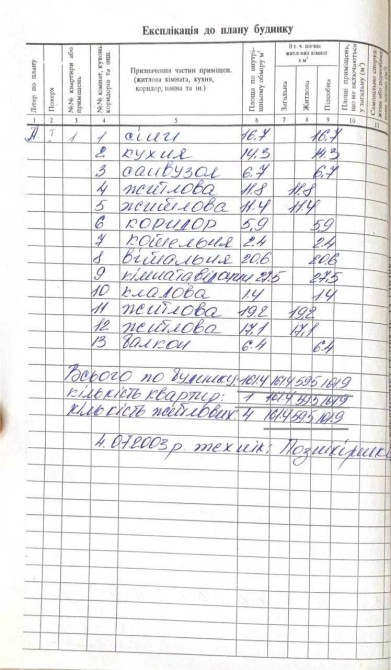 Експлікація до плану будинку
Літер по плану | Поверх | №№ квартири або приміщень | №№ кімнат, кухонь, коридорів та інш. | Призначення частин приміщен. (житлова кімната, кухня, коридор, ванна та ін.) | Площа по внутрішньому обміру м² | В т. ч. площа житлових кімнат в м²: Загальна | Житлова | Підсобна | Площі приміщень, що не включаються у загальну (м²)
1 2 3 4 5 6 7 8 9 10 11
А 1 1 1 сіни 16.7 16.7
2 кухня 14.3 14.3
3 санвузол 6.7 6.7
4 житлова 11.8 11.8
5 житлова 11.4 11.4
6 коридор 5.9 5.9
7 котельня 2.4 2.4
8 вітальня 20.6 20.6
9 кімната 27.5 27.5
10 кладова 1.4 1.4
11 житлова 19.2 19.2
12 житлова 17.1 17.1
13 балкон 6.4 6.4
Всього по будинку: 161.4 161.4 59.5 101.9
кількість квартир: 1 161.4 59.5 101.9
кількість житлових: 4 161.4 59.5 101.9
4.07.2003 р. технік: